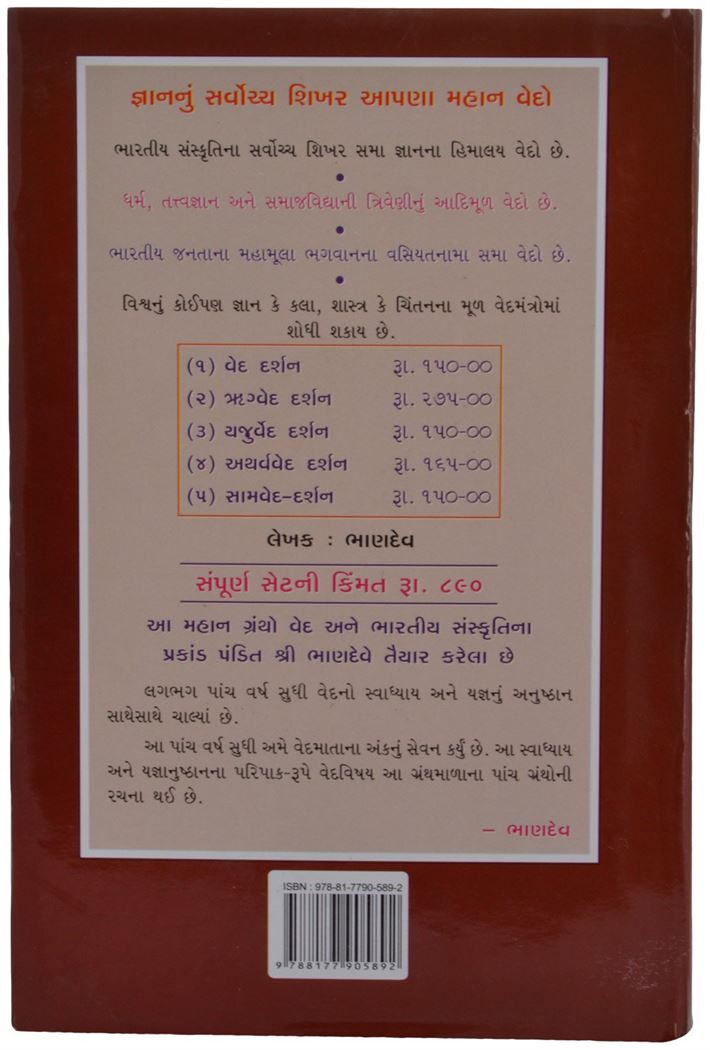 જ્ઞાનનું સર્વોચ્ચ શિખર આપણા મહાન વેદો
ભારતીય સંસ્કૃતિના સર્વોચ્ચ શિખર સમા જ્ઞાનના હિમાલય વેદો છે.
•
ધર્મ, તત્ત્વજ્ઞાન અને સમાજવિદ્યાની ત્રિવેણીનું આદિમૂળ વેદો છે.
•
ભારતીય જનતાના મહામૂલા ભગવાનના વસિયતનામા સમા વેદો છે.
•
વિશ્વનું કોઈપણ જ્ઞાન કે કલા, શાસ્ત્ર કે ચિંતનના મૂળ વેદમંત્રોમાં
શોધી શકાય છે.
(૧) વેદ દર્શન રૂા. ૧૫૦-૦૦
(૨) ઋગ્વેદ દર્શન રૂા. ૨૭૫-૦૦
(૩) યજુર્વેદ દર્શન રૂા. ૧૫૦-૦૦
(૪) અથર્વવેદ દર્શન રૂા. ૧૬૫-૦૦
(૫) સામવેદ-દર્શન રૂા. ૧૫૦-૦૦
લેખક : ભાણદેવ
સંપૂર્ણ સેટની કિંમત રૂા. ૮૯૦
આ મહાન ગ્રંથો વેદ અને ભારતીય સંસ્કૃતિના
પ્રકાંડ પંડિત શ્રી ભાણદેવે તૈયાર કરેલા છે
લગભગ પાંચ વર્ષ સુધી વેદનો સ્વાધ્યાય અને યજ્ઞનું અનુષ્ઠાન
સાથેસાથે ચાલ્યાં છે.
આ પાંચ વર્ષ સુધી અમે વેદમાતાના અંકનું સેવન કર્યું છે. આ સ્વાધ્યાય
અને યજ્ઞાનુષ્ઠાનના પરિપાક-રૂપે વેદવિષય આ ગ્રંથમાળાના પાંચ ગ્રંથોની
રચના થઈ છે.
– ભાણદેવ
ISBN : 978-81-7790-589-2
9 788177 905892